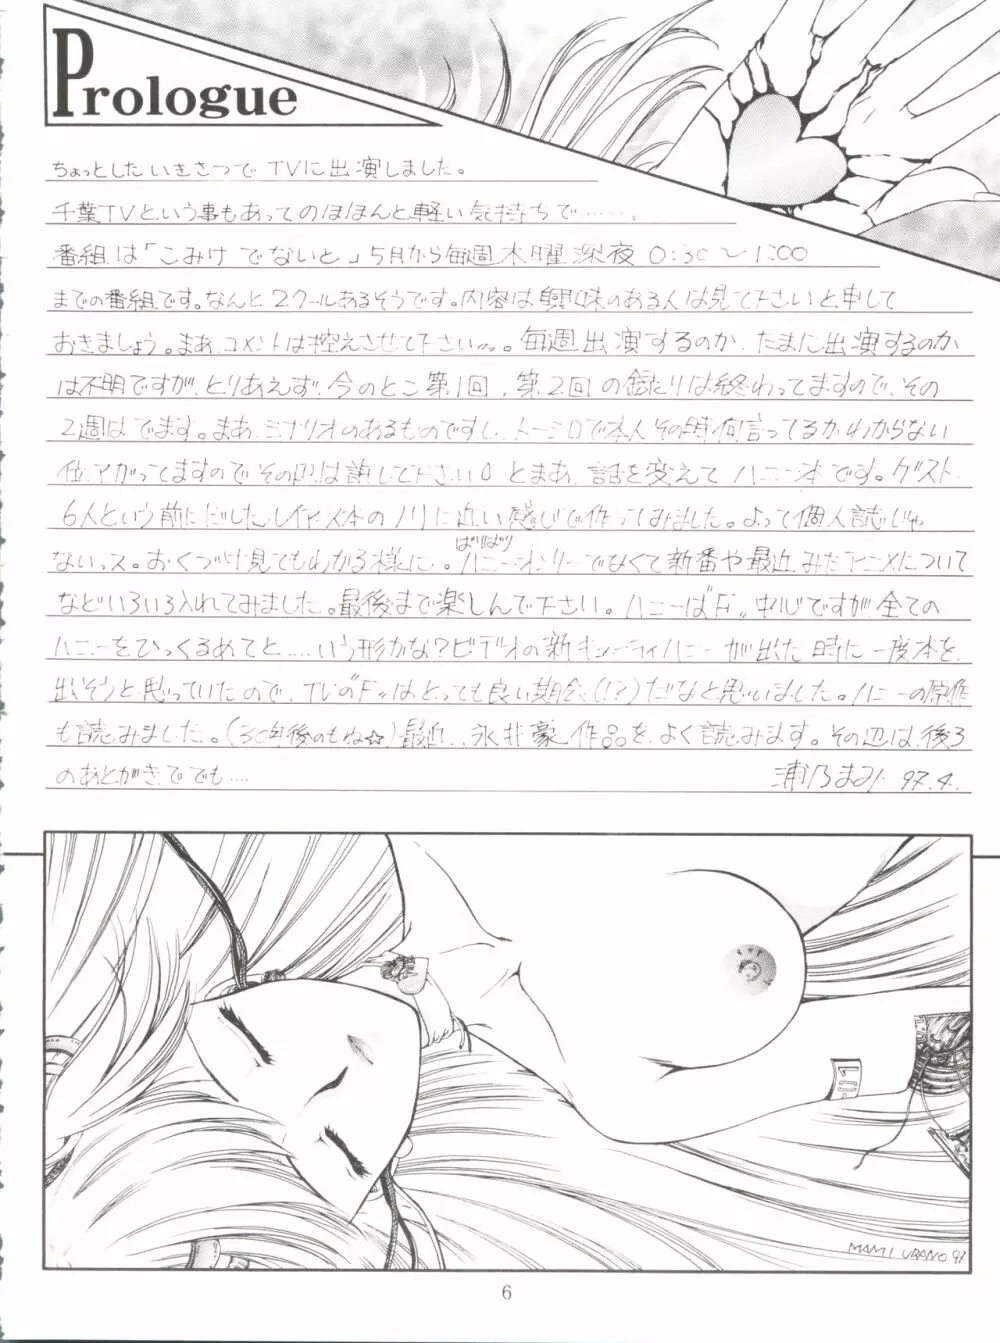 Prologue
ちょっとしたいきさつで TVに出演しました。
千葉TVという事もあってのほほんと軽い気持ちで……。
番組は「こみけ でないと」5月から毎週木曜深夜 0:30〜1:00
までの番組です。なんと2クールあるそうです。内容は興味のある人は見て下さいと申して
おきましょう。まあ、コメントは控えさせて下さい。毎週出演するのか、たまに出演するのか
は不明ですが、とりあえず、今のとこ第1回,第2回の録りは終わってますので、その
2週はでます。まあ、シナリオのあるものですし、トーシロで本人その時何言ってるかわからない
位アガってますのでその辺は許して下さい。とまあ、話を変えてハニー本です。ゲスト
6人という前にだしたレイアース本のノリに近い感じで作ってみました。よって個人誌じゃ
ないっス。おくづけ見てもわかる様に。ハニーオンリーでなくて新番や最近みたアニメについて
ばりばり
などいろいろ入れてみました。最後まで楽しんで下さい。ハニーは“F”中心ですが、全ての
ハニーをひっくるめてと……いう形かな?ビデオの新キューティハニーが出た時に一度本を
出そうと思っていたので、TVの“F”は、とっても良い機会(!?)だなと思いました。ハニーの原作
も読みました。(30年後のもね☆)最近、永井豪作品をよく読みます。その辺は、後ろ
のあとがきででも…
浦乃まみ 97.4.
MAMI URANO 97
6